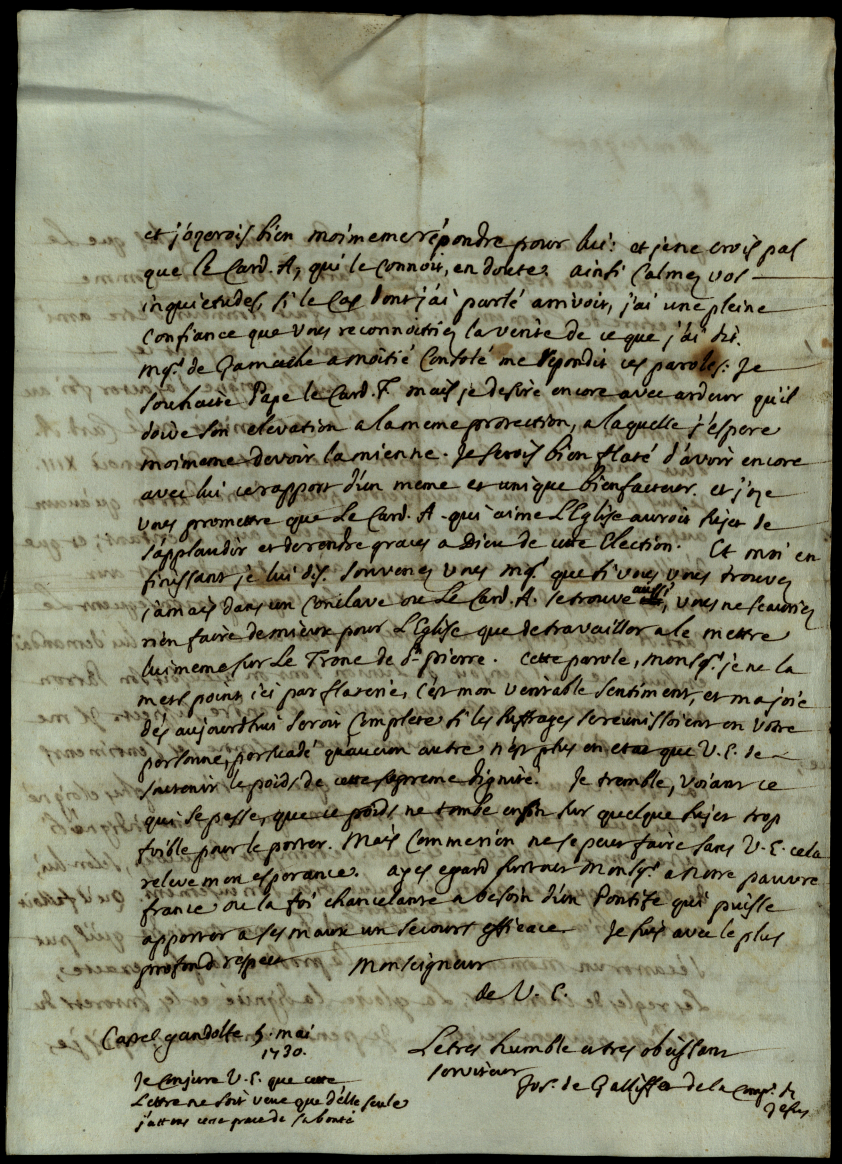 et j'oserois bien moimeme répondre pour lui: et je ne crois pas
que le Card. A, qui le connoit, en doute. ainsi Calmez vos
inquietudes, si le Cas dont j'ai parlé arrivoit, j'ai une pleine
Confiance que vous reconnoitriez la verité de ce que j'ai dit.
Mgr. de Gamache a moitié Consolé me répondit ces paroles: Je
souhaite Pape le Card. F. mais je desire encore avec ardeur qu'il
doive son elevation a la meme protection, a laquelle j'espere
moimeme devoir la mienne. Je serois bien flaté d'avoir encore
avec lui ce rapport d'un meme et unique bienfacteur. et j'oze
vous promettre que le Card. A. qui aime l'Eglise auroit sujet de
s'applaudir et de rendre graces a Dieu de cette Election. Et moi en
finissant je lui dis. souvenez vous Mgr. que si vous vous trouvez
jamais dans un Conclave ou le Card. A. se trouve aussi, vous ne scauriez
rien faire de mieux pour l'Eglise que de travailler a le mettre
luimeme sur le Trone de St. pierre. Cette parole, Monsgr. je ne la
mets point ici par flaterie, c'est mon veritable sentiment, et ma joie
dés aujourdhui seroit complete si les suffrages se reunissoient en votre
personne, persuadé qu'aucun autre n'est plus en etat que V. E. de
soutenir le poids de cette supreme dignité. Je tremble, voiant ce
qui se passe, que ce poids ne tombe enfin sur quelque sujet trop
foible pour le porter. Mais Comme rien ne se peut faire sans V. E. cela
releve mon esperance. ayez egard surtout Monsgr. a notre pauvre
france ou la foi chancelante a besoin d'un Pontife qui puisse
apporter a ses maux un secours efficace. Je suis avec le plus
profond respect Monseigneur
de V. E.
Castel gandolfe 5. mai
1730.
Le tres humble et tres obeissant
serviteur
Jos. de Galliffet de la Comp. de
Jesus
Je Conjure V. E. que cette
Lettre ne soit veue que d'elle seule
j'attens cette grace de sa bonté